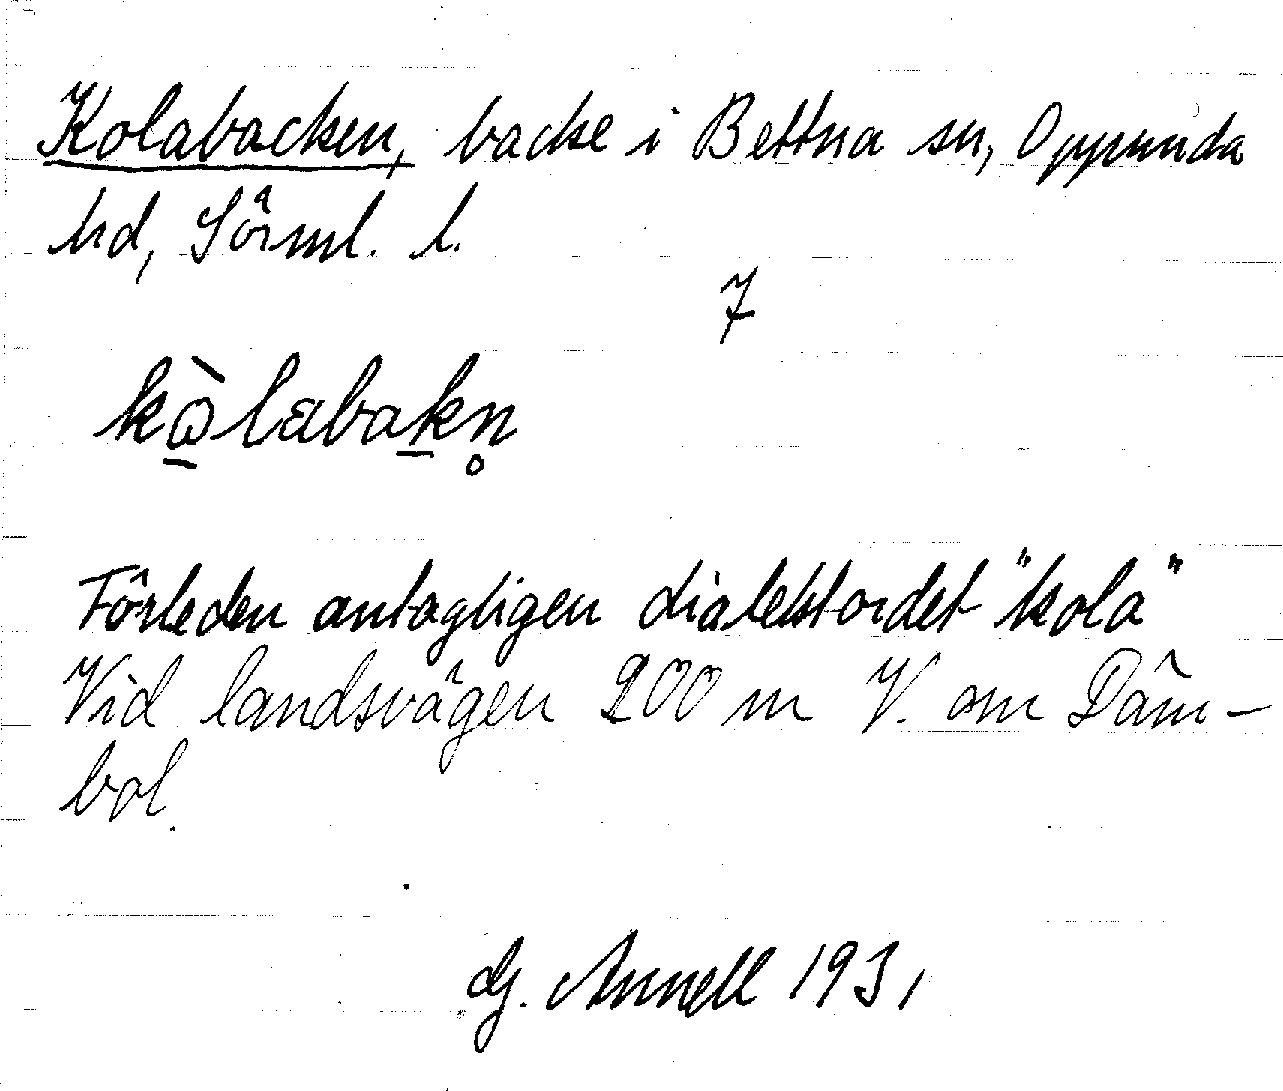 Kolabacken, backe i Bettna sn, Oppunda
hd, Sörml. l.
7
kòlabakn̥
Förleden antagligen dialektordet "kola"
Vid landsvägen 200 m V. om Däm-
bol.
G. Annell 1931